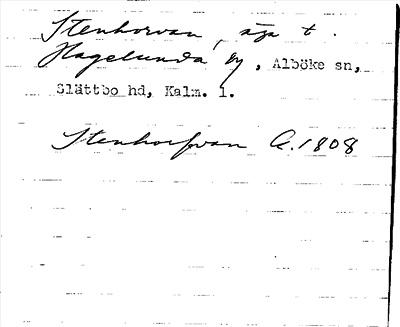 Stenhorvan, äga t.
Hagelunda by, Alböke sn,
Slättbo hd, Kalm. l.
Stenhorfvan A. 1808